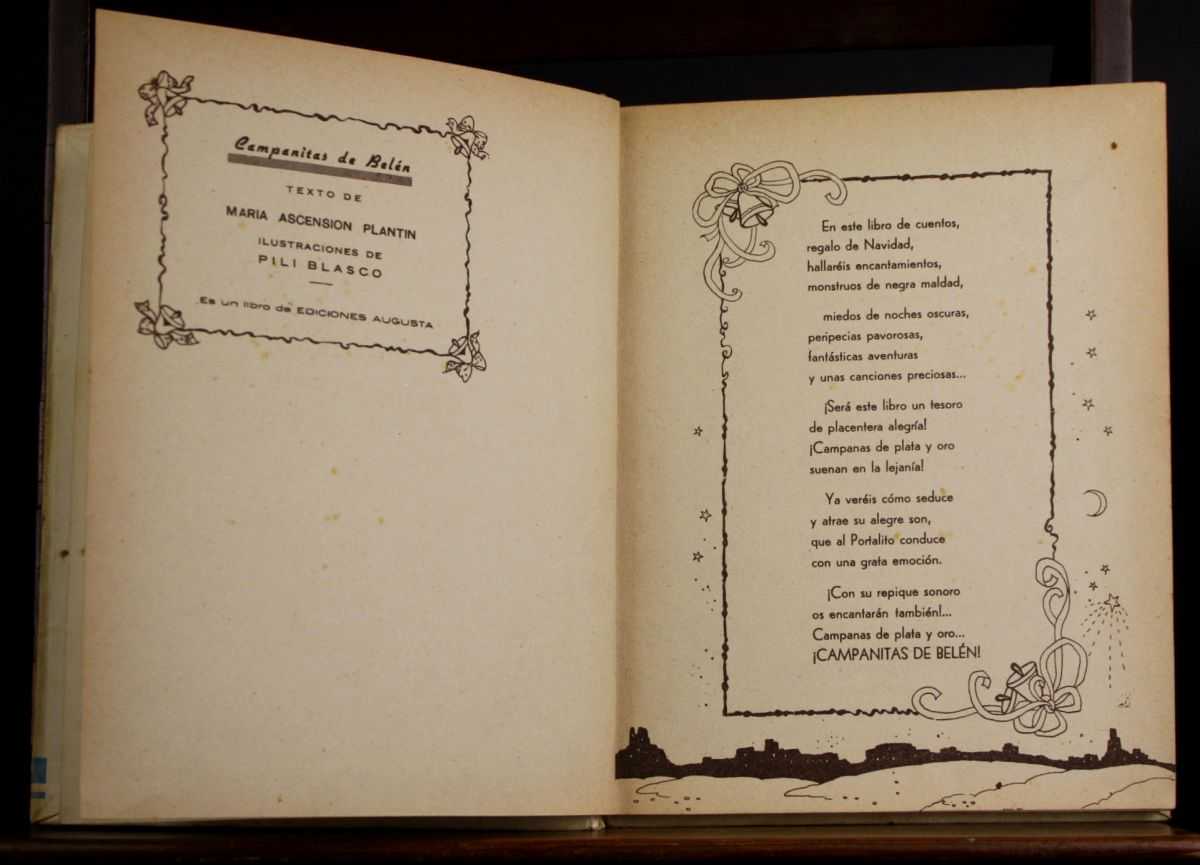 Campanitas de Belén
TEXTO DE
MARIA ASCENSION PLANTIN
ILUSTRACIONES DE
PILI BLASCO
Es un libro de EDICIONES AUGUSTA
En este libro de cuentos,
regalo de Navidad,
hallaréis encantamientos,
monstruos de negra maldad,
miedos de noches oscuras,
peripecias pavorosas,
fantásticas aventuras
y unas canciones preciosas...
¡Será este libro un tesoro
de placentera alegría!
¡Campanas de plata y oro
suenan en la lejanía!
Ya veréis cómo seduce
y atrae su alegre son,
que al Portalito conduce
con una grata emoción.
¡Con su repique sonoro
os encantarán también!...
Campanas de plata y oro...
¡CAMPANITAS DE BELÉN!